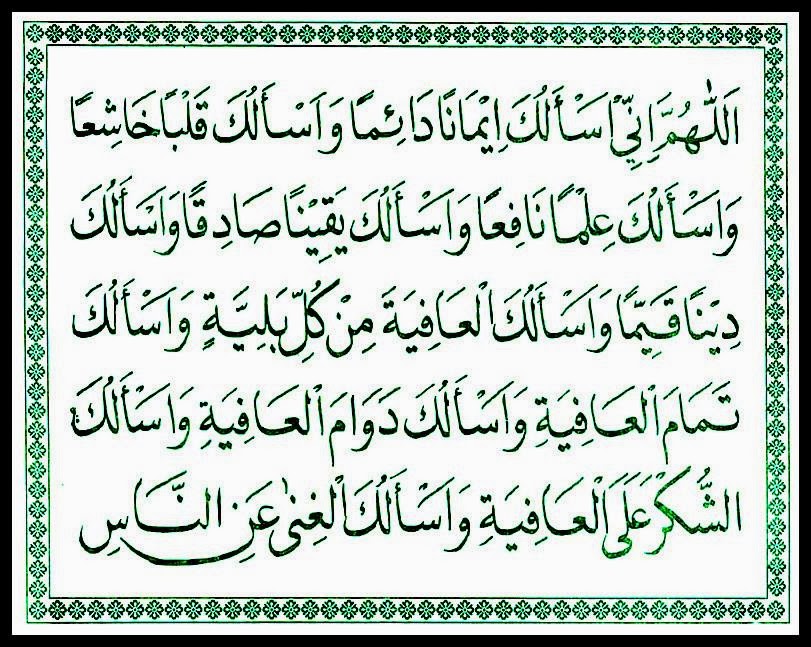 اَللّٰهُمَّ اِنِّيْ اَسْأَلُكَ اِيْمَانًا دَائِمًا وَاَسْأَلُكَ قَلْبًا خَاشِعًا
وَاَسْأَلُكَ عِلْمًا نَافِعًا وَاَسْأَلُكَ يَقِيْنًا صَادِقًا وَاَسْأَلُكَ
دِيْنًا قَيِّمًا وَاَسْأَلُكَ الْعَافِيَةَ مِنْ كُلِّ بَلِيَّةٍ وَاَسْأَلُكَ
تَمَامَ الْعَافِيَةِ وَاَسْأَلُكَ دَوَامَ الْعَافِيَةِ وَاَسْأَلُكَ
الشُّكْرَ عَلَى الْعَافِيَةِ وَاَسْأَلُكَ الْغِنٰى عَنِ النَّاسِ